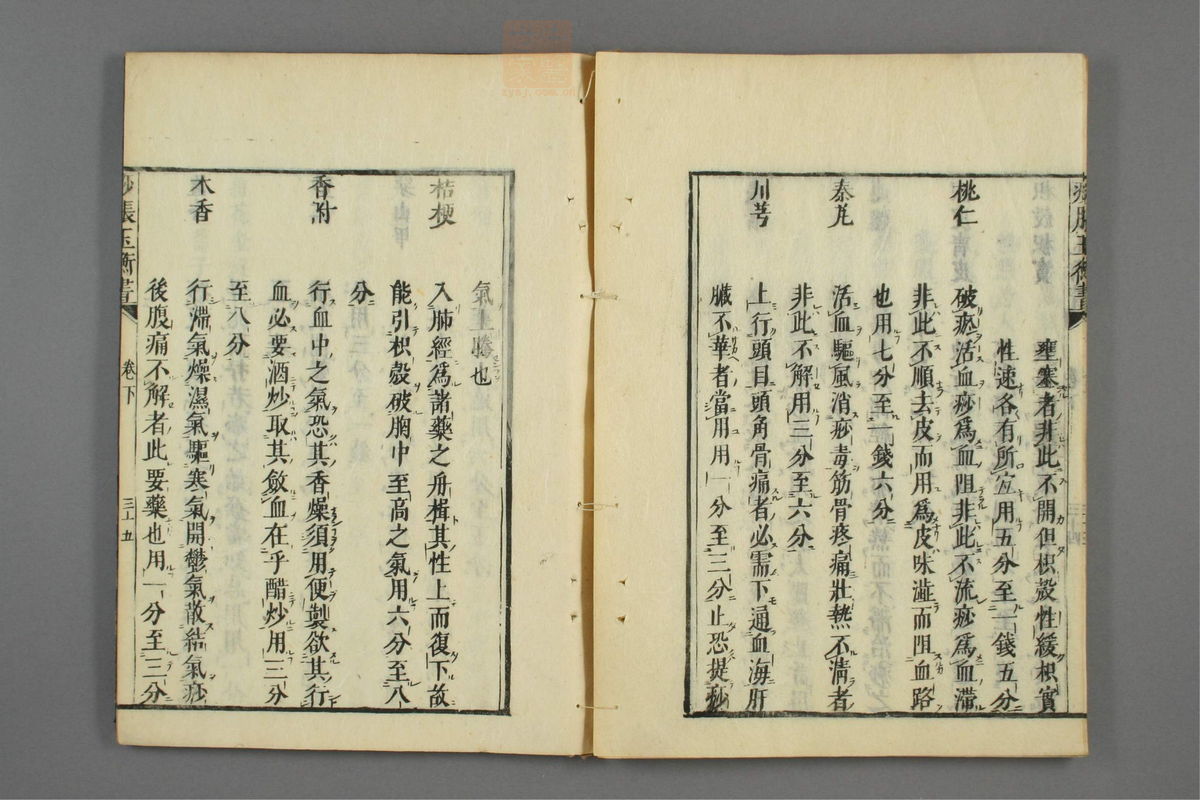 痧脹玉衡書
壅塞者非此不開但枳殼性緩枳實
性速各有所宜用五分至一錢五分
桃仁
破瘀活血痧爲血阻非此不流痧爲血滯
非此不順去皮而用爲皮味澁而阻血路
也用七分至一錢六分
秦艽
活血驅風消痧毒筋骨疼痛壯熱不清者
非此不解用三分至六分
川芎
上行頭目頭角骨痛者必需下通血海肝
臟不華者當用用一分至三分止恐提痧
氣上騰也
桔梗
入肺經爲諸藥之舟楫其性上而復下故
能引枳殼破胸中至高之氣用六分至八
分
香附
行血中之氣恐其香燥須用便製欲其行
血必要酒炒取其斂血在乎醋炒用三分
至八分
木香
行滯氣燥濕氣驅寒氣開鬱氣散結氣痧
後腹痛不解者此要藥也用一分至三分
痧脹玉衡書
卷下
三十五